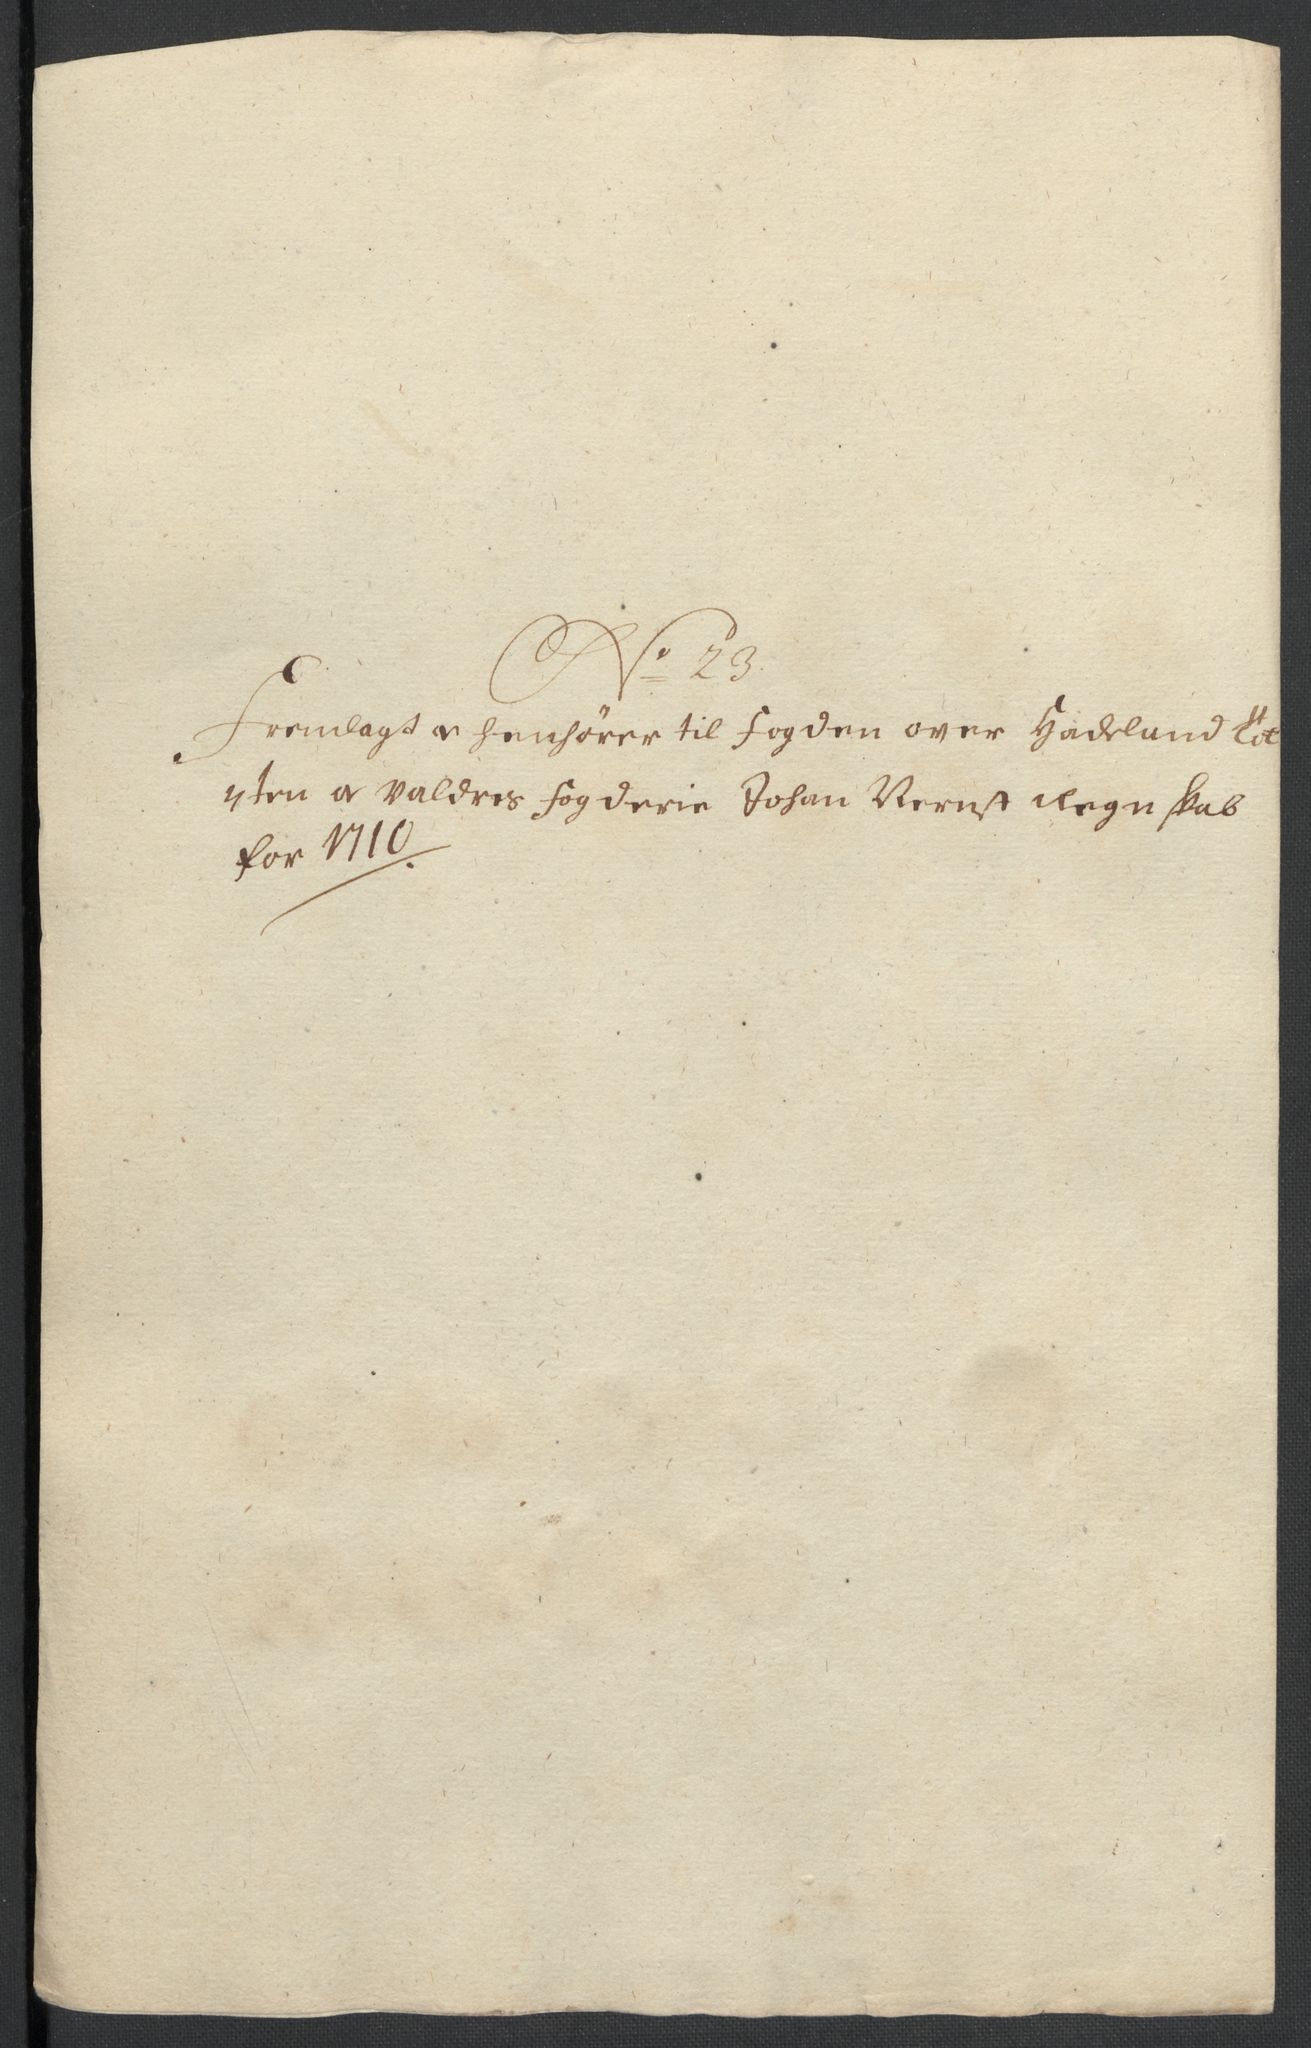 No 23.
Fremlagt og henhører til fogden over Hadeland Tot
ten og Valdres fogderie Johan Vernst Regnskab
for 1710.